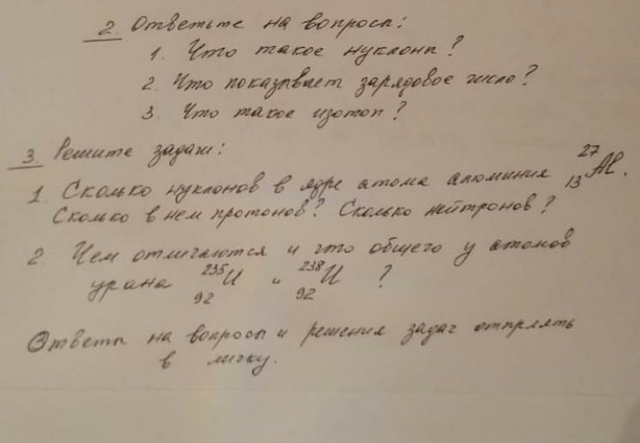 2. Ответьте на вопросы:
1. Что такое нуклоны?
2. Что показывает зарядовое число?
3. Что такое изотоп?
3. Решите задачи:
1. Сколько нуклонов в ядре атома алюминия ²⁷₁₃Al.
Сколько в нем протонов? Сколько нейтронов?
2. Чем отличаются и что общего у атомов
урана ²³⁵₉₂U и ²³⁸₉₂U ?
Ответы на вопросы и решения задач отпрлять
в личку.